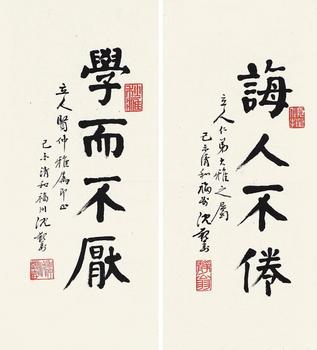 學而不厭
立人賢仲雅屬即正
己未清和福州沈覲壽
誨人不倦
立人仁弟大雅之屬
己未清和福州沈覲壽